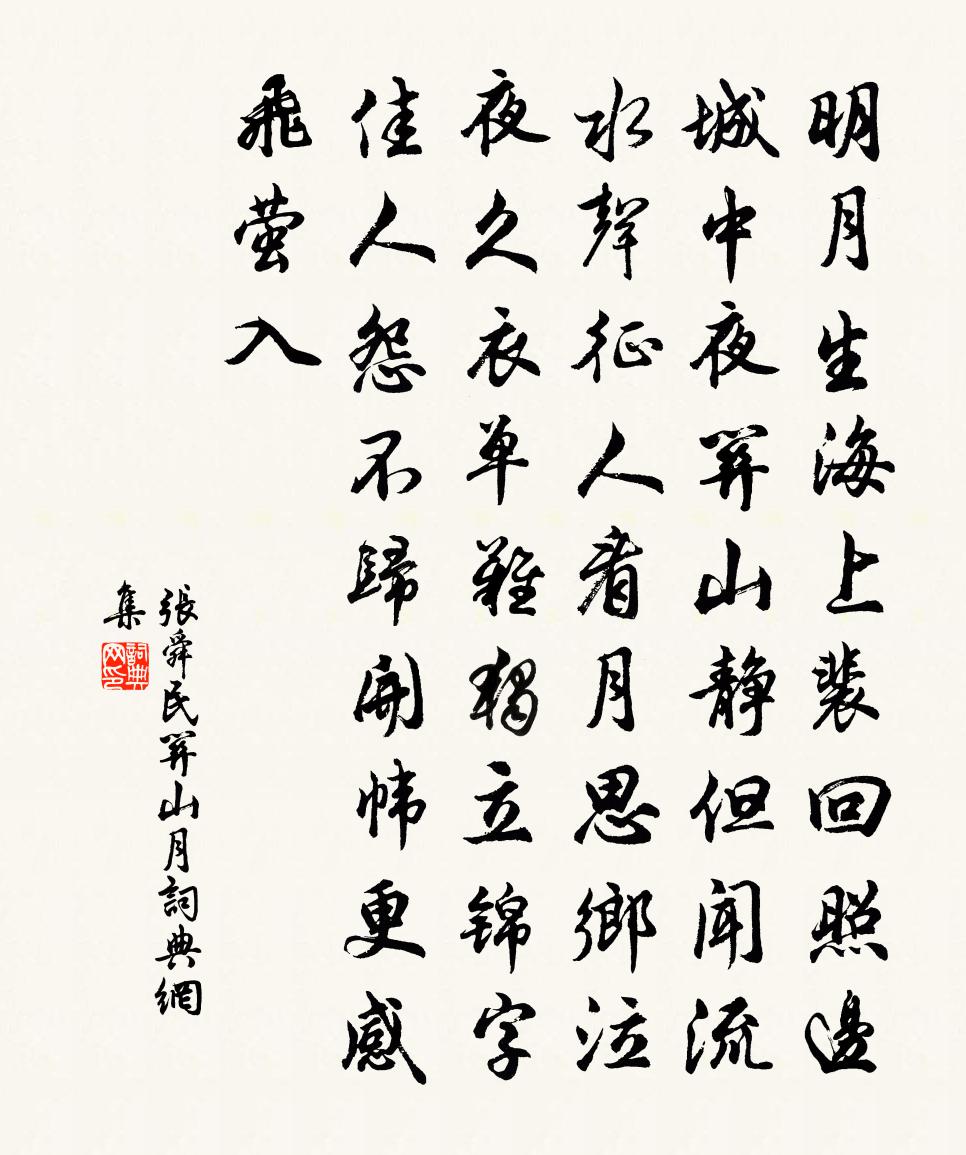 明月生海上裴回照邊
城中夜關山静但闻流
水聲征人看月思鄉泣
夜久衣单難獨立锦字
佳人怨不歸開帏更感
飛萤入
張舜民關山月詞典網
集
詞典網印